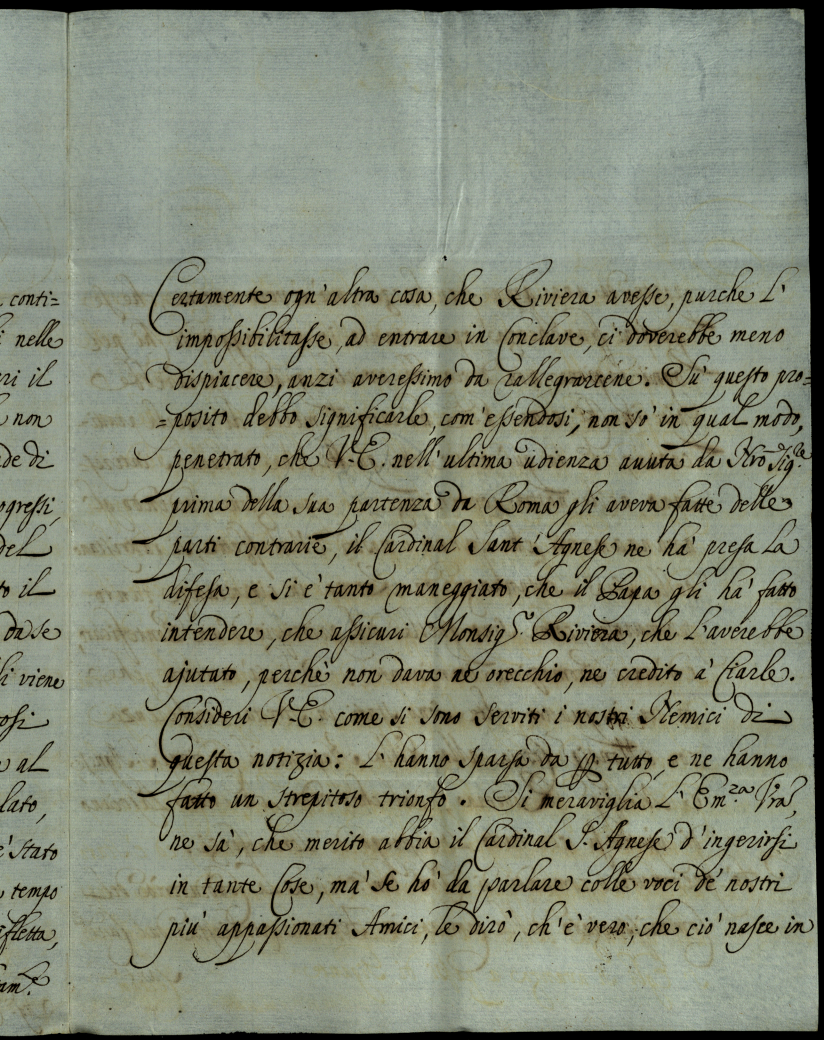 conti=
nelle
il
non
de di
ogressi,
del
to il
da se
li viene
osi
al
lato,
è stato
tempo
fletta,
am.te
Certamente ogn'altra cosa, che Riviera avesse, purche L'
impossibilitasse, ad entrare in Conclave, ci doverebbe meno
dispiacere, anzi averessimo da rallegrarcene. Sù questo pro=
=posito debbo significarle, com'essendosi, non sò in qual modo,
penetrato, che V.E. nell'ultima udienza avuta da Nrõ Sig.re
prima della sua partenza da Roma gli aveva fatte delle
parti contrarie, il Cardinal Sant'Agnese ne hà presa La
difesa, e si è tanto maneggiato, che il Papa gli hà fatto
intendere, che assicuri Monsig.r Riviera, che L'averebbe
ajutato, perchè non dava ne orecchio, ne credito à Ciarle.
Consideri V.E. come si sono serviti i nostri Nemici di
questa notizia: L'hanno sparsa da p tutto, e ne hanno
fatto un strepitoso trionfo. Si meraviglia L'Em.za Vra,
ne sà, che merito abbia il Cardinal S. Agnese d'ingerirsi
in tante Cose, mà se hò da parlare colle voci de nostri
più appassionati Amici, le dirò, ch'è vero, che ciò nasce in